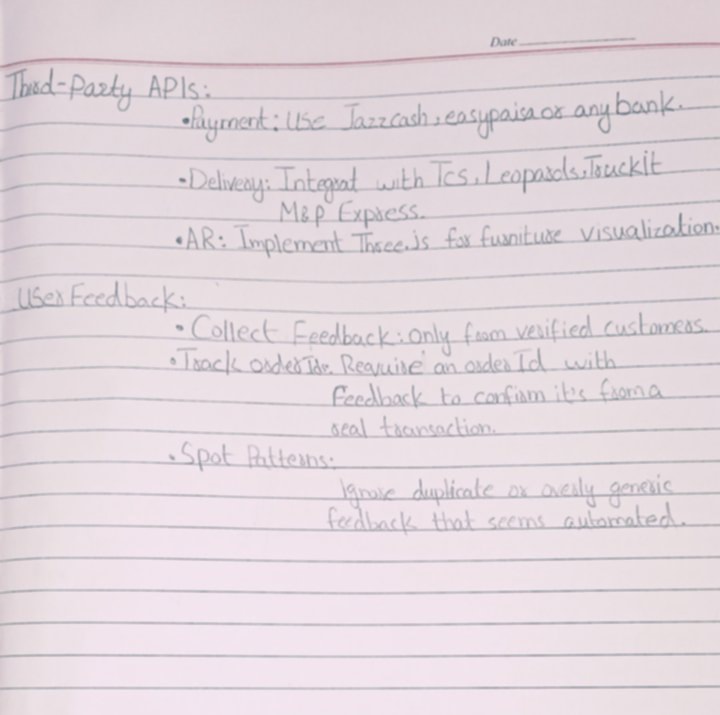 Date
Third-Party APIs:
•Payment: Use Jazzcash, easypaisa or any bank.
•Delivery: Integrat with Tcs, Leopards, Truckit
M&P Express.
•AR: Implement Three.js for furniture visualization.
User Feedback:
•Collect Feedback: only from verified customers.
•Track order Ids. Require an order Id with
Feedback to confirm it's from a
real transaction.
•Spot Patterns:
Ignore duplicate or overly generic
feedback that seems automated.